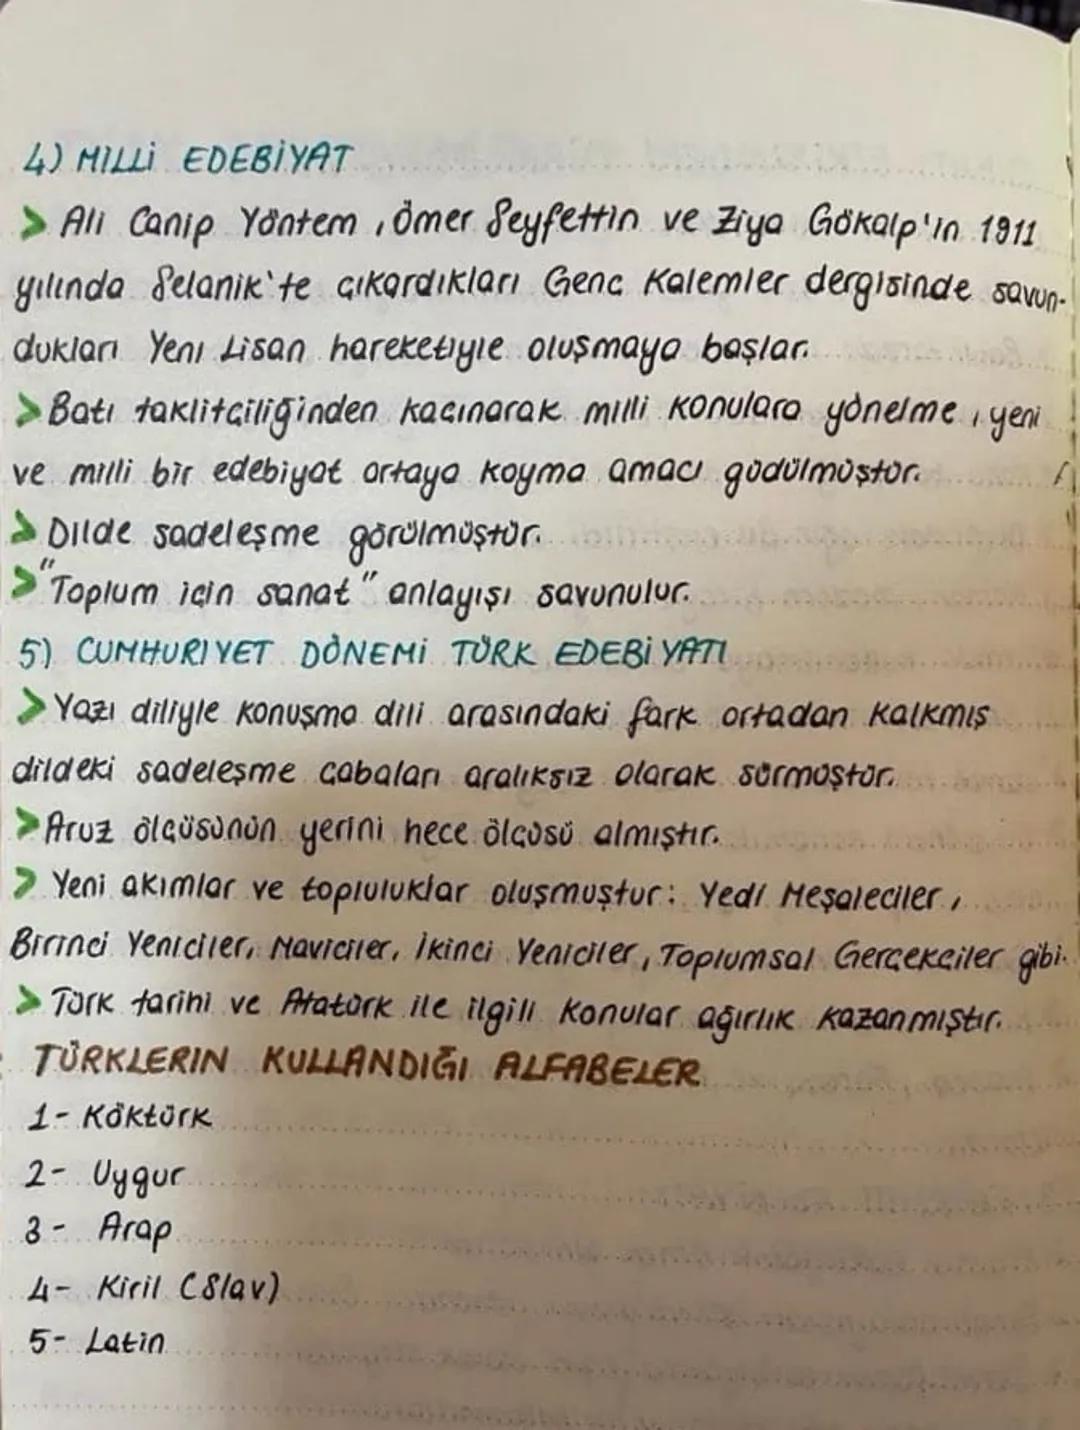 4) MİLLİ EDEBİYAT
> Ali Canip Yöntem, Ömer Seyfettin ve Ziya Gökalp'ın 1911
yılında Selanik'te çıkardıkları Genç Kalemler dergisinde savun-
dukları Yeni Lisan hareketiyle oluşmaya başlar.
> Batı taklitçiliğinden kaçınarak milli konulara yönelme, yeni
ve milli bir edebiyat ortaya koyma amacı güdülmüştür.
> Dilde sadeleşme görülmüştür.
> "Toplum için sanat" anlayışı savunulur.
5) CUMHURİYET DÖNEMİ TÜRK EDEBİYATI
> Yazı diliyle konuşma dili arasındaki fark ortadan kalkmış
dildeki sadeleşme çabaları aralıksız olarak sürmüştür.
> Aruz ölçüsünün yerini hece ölçüsü almıştır.
> Yeni akımlar ve topluluklar oluşmuştur: Yedi Meşaleciler,
Birinci Yeniciler, Maviciler, İkinci Yeniciler, Toplumsal Gerçekçiler gibi.
> Türk tarihi ve Atatürk ile ilgili konular ağırlık kazanmıştır.
TÜRKLERİN KULLANDIĞI ALFABELER
1- Köktürk
2- Uygur
3- Arap
4- Kiril (Slav)
5- Latin